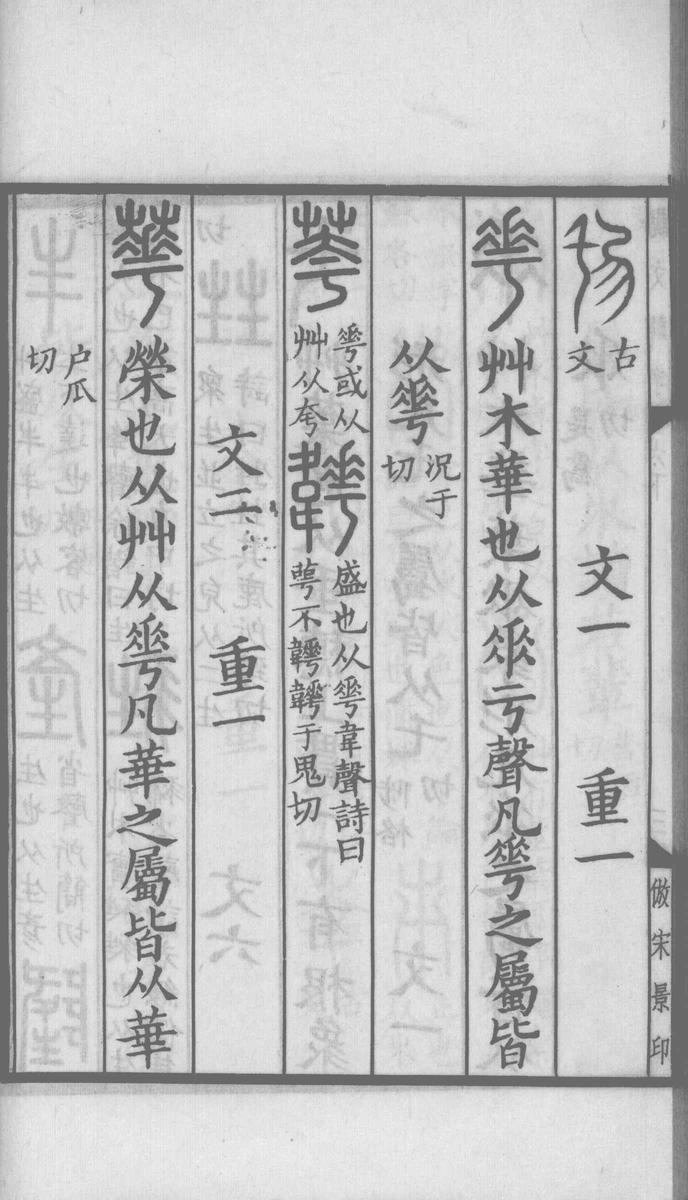 古文 文一 重一
𠌶 艸木華也从𠂹亏聲凡𠌶之屬皆
从𠌶 況于切
荂 𠌶或从艸从夸 𩏊 盛也从𠌶韋聲詩曰萼不𩏊𩏊于鬼切
文二 重一
華 榮也从艸从𠌶凡華之屬皆从華
戶瓜切
倣宋景印